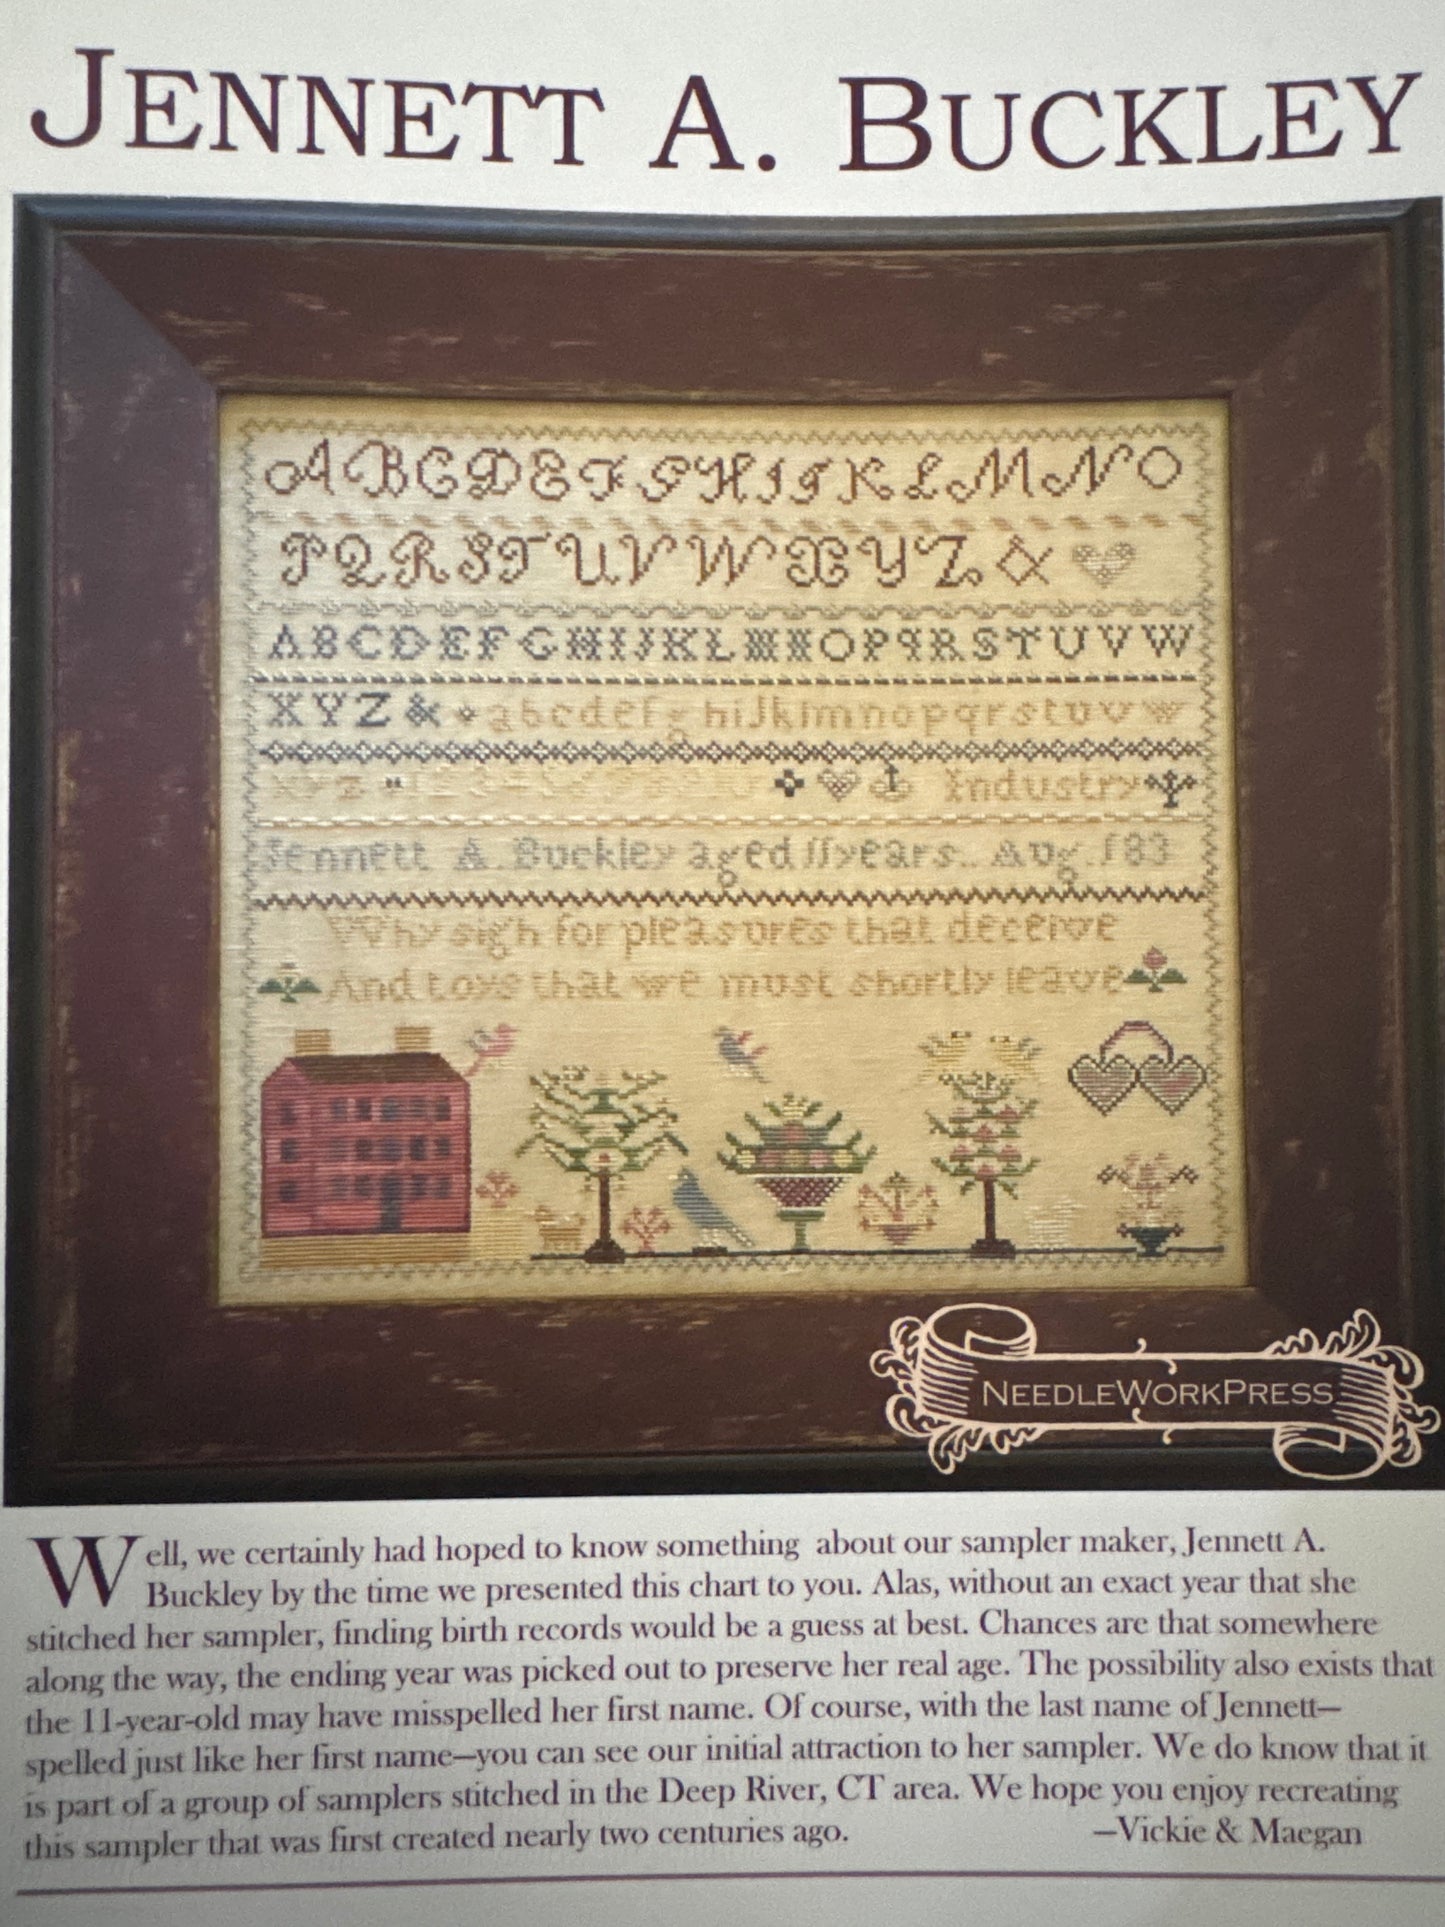 JENNETT A. BUCKLEY
A B C D E F G H I J K L M N O
P Q R S T U V W X Y Z &
A B C D E F G H I J K L M N O P Q R S T U V W
X Y Z & a b c d e f g h i J k l m n o p q r s t u v w
x y z Industry
Jennett A. Buckley aged 11 years. Aug 183
Why sigh for pleasures that deceive
And toys that we must shortly leave
NEEDLEWORKPRESS
Well, we certainly had hoped to know something about our sampler maker, Jennett A.
Buckley by the time we presented this chart to you. Alas, without an exact year that she
stitched her sampler, finding birth records would be a guess at best. Chances are that somewhere
along the way, the ending year was picked out to preserve her real age. The possibility also exists that
the 11-year-old may have misspelled her first name. Of course, with the last name of Jennett—
spelled just like her first name—you can see our initial attraction to her sampler. We do know that it
is part of a group of samplers stitched in the Deep River, CT area. We hope you enjoy recreating
this sampler that was first created nearly two centuries ago. —Vickie & Maegan